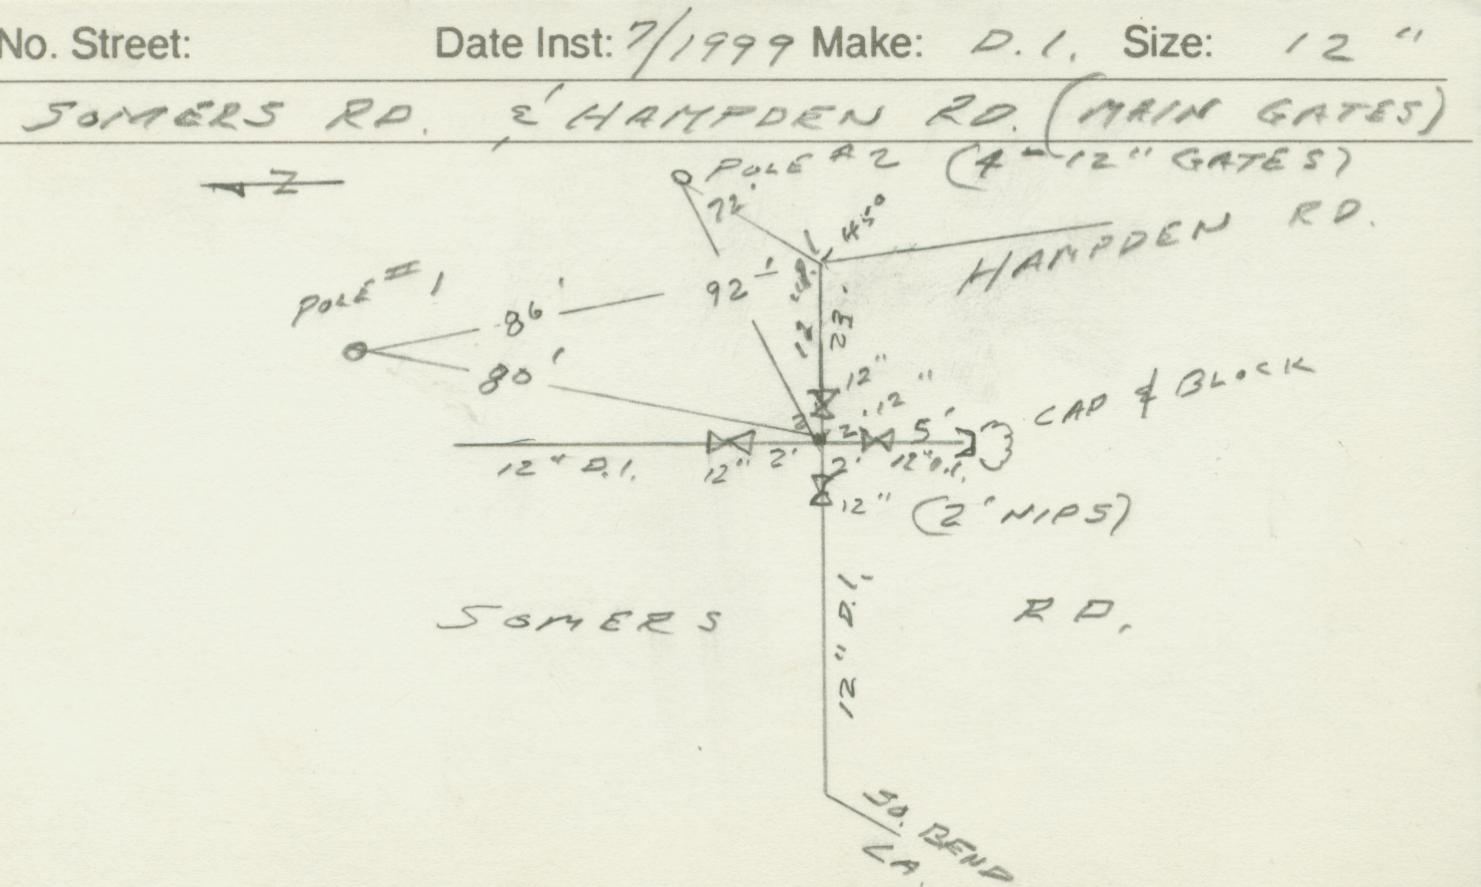 No. Street: Date Inst: 7/1999 Make: D.I. Size: 12"
SOMERS RD. & HAMPDEN RD. (MAIN GATES)
N
POLE #2 (4-12" GATES)
72'
45°
HAMPDEN RD.
POLE #1
86'
92'
12"
23'
80'
12"
12"
CAP & BLOCK
2'
2'
5'
12" D.I.
12"
2'
2'
12" D.I.
12" (2' NIPS)
12" D.I.
SOMERS RD.
SO. BEND
LA.